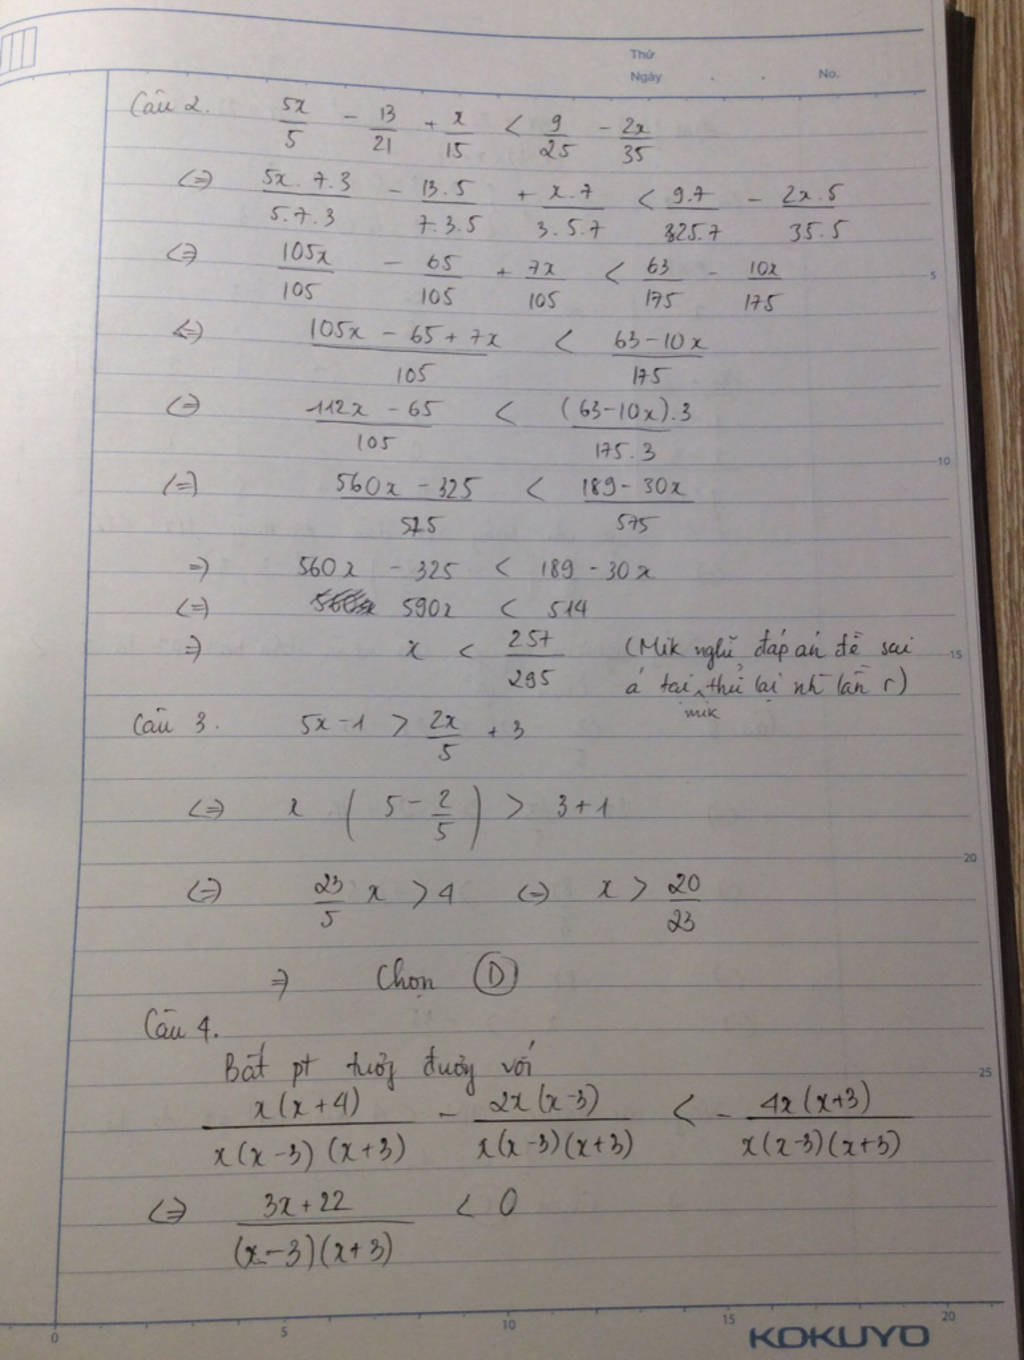 Thứ
Ngày . . No.
Câu 2. 5x/5 - 13/21 + x/15 < 9/25 - 2x/35
<=> 5x.7.3/5.7.3 - 13.5/7.3.5 + x.7/3.5.7 < 9.7/25.7 - 2x.5/35.5
<=> 105x/105 - 65/105 + 7x/105 < 63/175 - 10x/175
<=> 105x - 65 + 7x/105 < 63-10x/175
<=> 112x - 65/105 < (63-10x).3/175.3
<=> 560x - 325/525 < 189 - 30x/575
=> 560x - 325 < 189 - 30x
<=> 590x < 514
=> x < 257/295 (Mik nghĩ đáp án đề sai
á tại mik thử lại nh` lần r)
Câu 3. 5x-1 > 2x/5 + 3
<=> x (5 - 2/5) > 3+1
<=> 23/5 x > 4 <=> x > 20/23
=> Chọn D
Câu 4.
Bất pt tương đương với
x(x+4)/x(x-3)(x+3) - 2x(x-3)/x(x-3)(x+3) < - 4x(x+3)/x(x-3)(x+3)
<=> 3x+22/(x-3)(x+3) < 0
5
10
15
20
25
0 5 10 15 20
KOKUYO